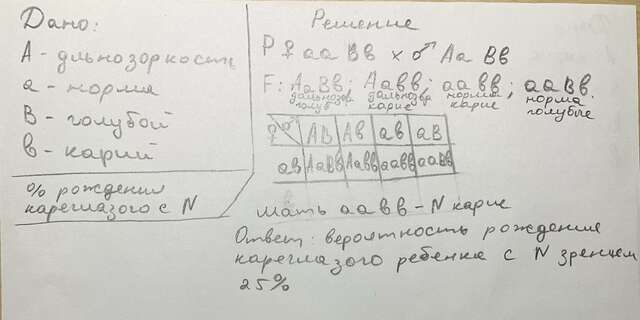 Дано:
А - дльнозоркость
а - норма
В - голубой
в - карий
% рождения
кареглазого с N
Решение
Р ♀ аа Вв × ♂ Аа Вв
F: АаВв; Аавв; аавв; ааВв.
дальнозор. дальнозор. норма норма
голуб карие карие голубые
♀ ♂ АВ Ав ав аВ
ав АаВв Аавв аавв ааВв
мать аавв - N карие
Ответ: вероятность рождения
кареглазого ребенка с N зрением
25%